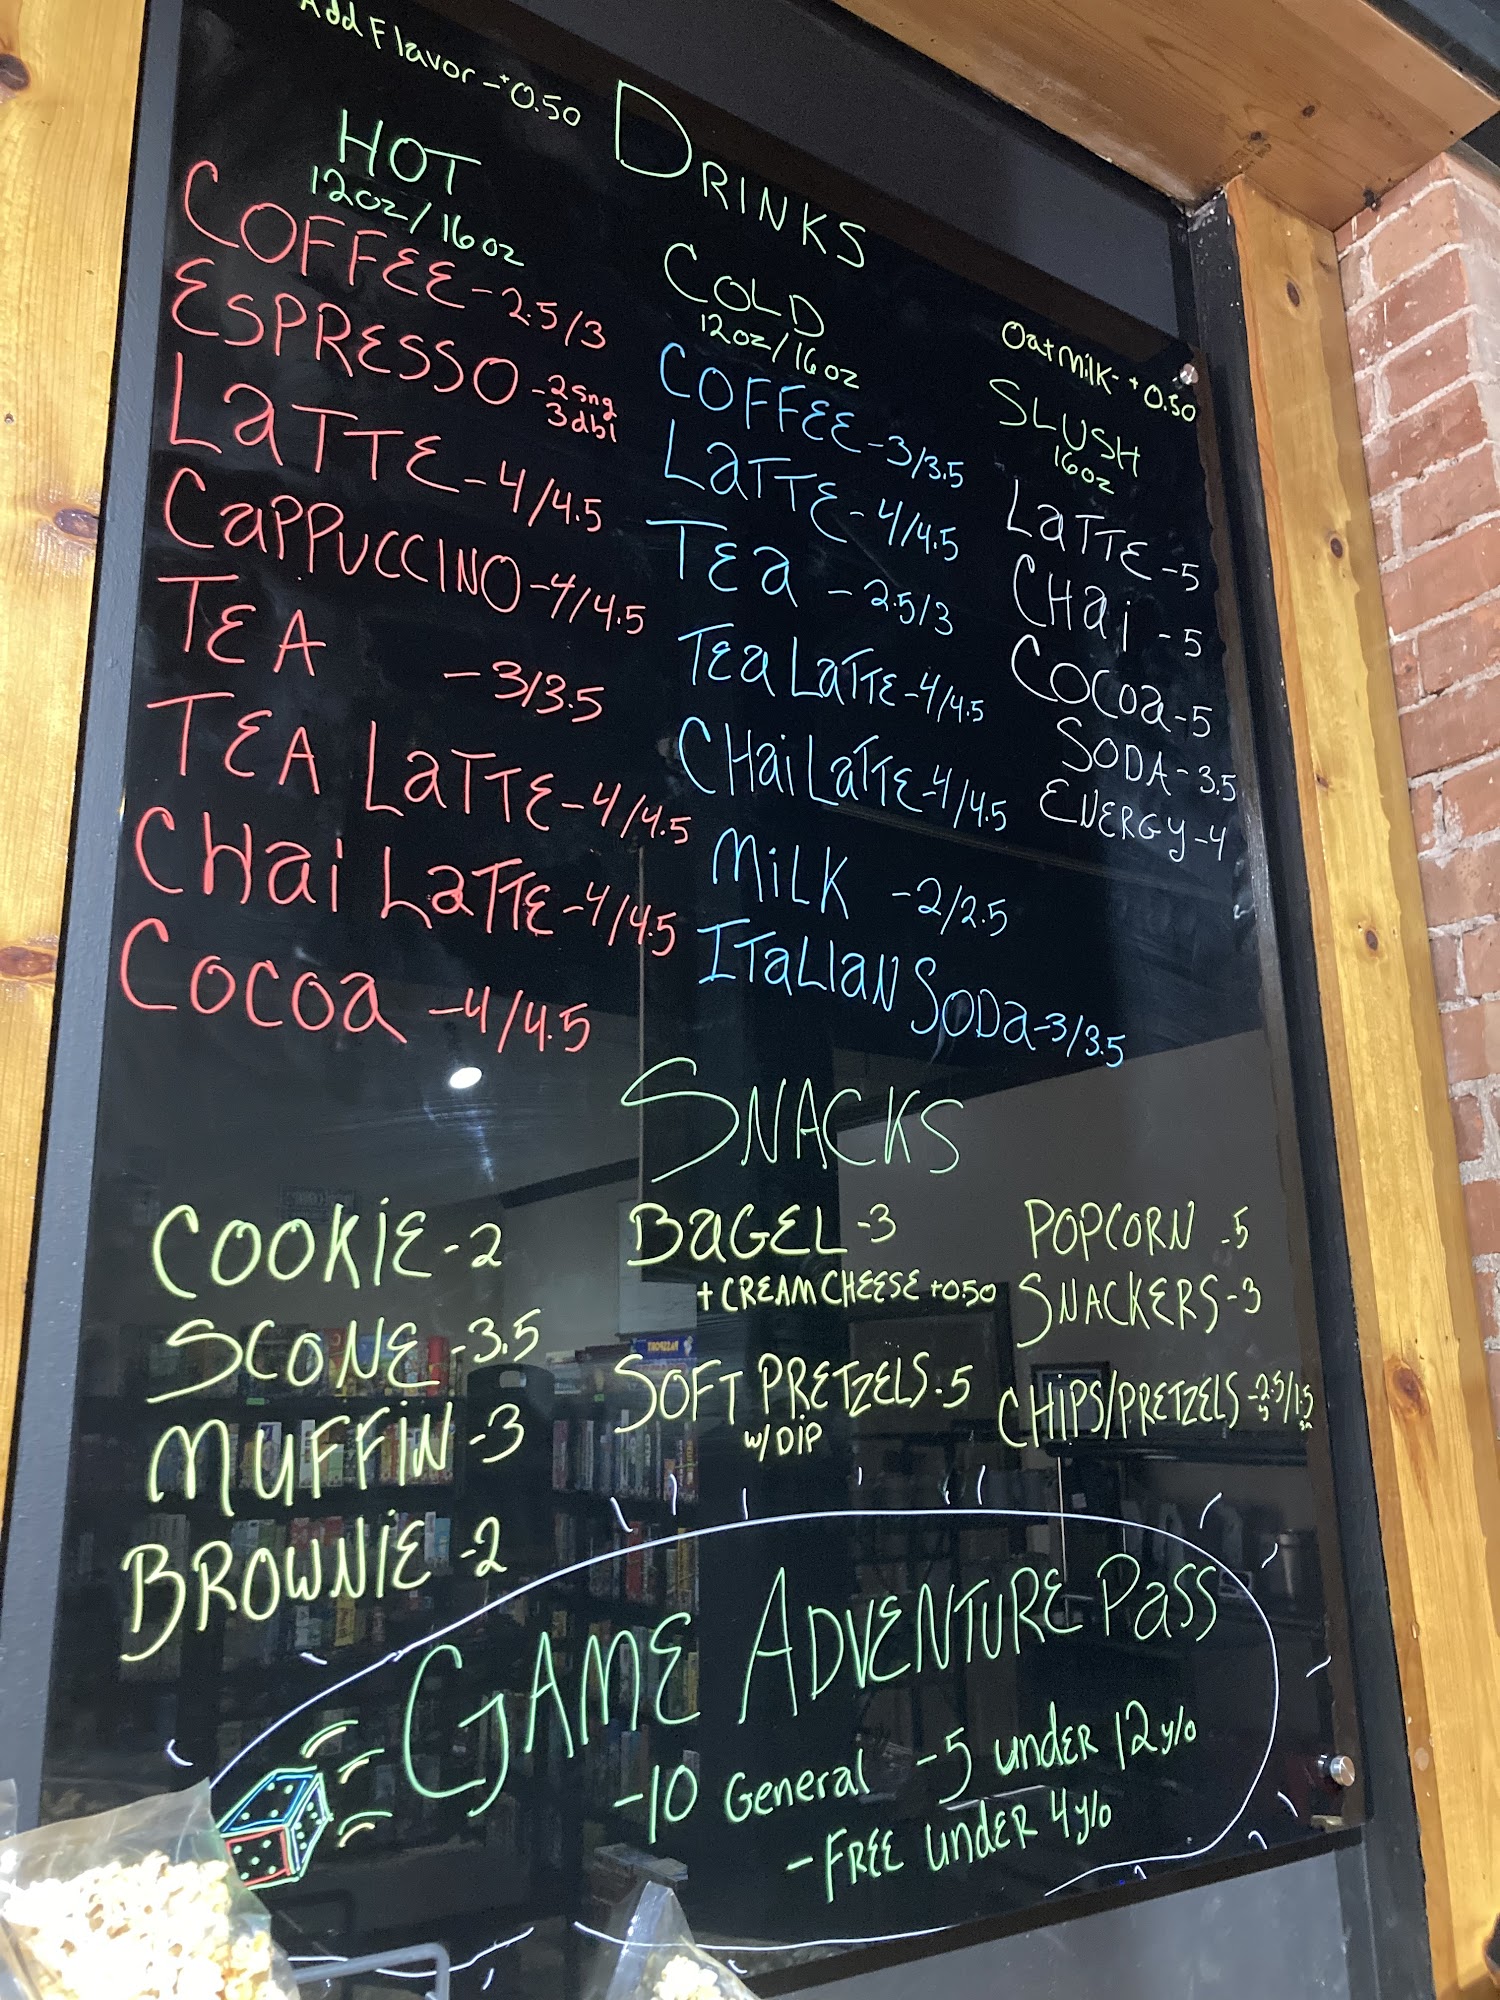 Add Flavor - +0.50
DRINKS
HOT
12oz/16oz
COFFEE - 2.5/3
ESPRESSO - 2 sng
3 dbl
LaTTE - 4/4.5
CaPPUCCINO - 4/4.5
TEA - 3/3.5
TEA LaTTE - 4/4.5
CHai LaTTE - 4/4.5
COCOa - 4/4.5
COLD
12oz/16oz
COFFEE - 3/3.5
LaTTE - 4/4.5
TEa - 2.5/3
TEa LaTTE - 4/4.5
CHai LaTTE - 4/4.5
MiLK - 2/2.5
ITaLIaN SODa - 3/3.5
Oat Milk - +0.50
SLUSH
16oz
LaTTE - 5
CHai - 5
COCOa - 5
SODA - 3.5
ENERGY - 4
SNACKS
COOKiE - 2
SCONE - 3.5
MUFFiN - 3
BROWNiE - 2
BaGEL - 3
+ CREAM CHEESE +0.50
SOFT PRETZELS - 5
w/ DIP
POPCORN - 5
SNACKERS - 3
CHiPS/PRETZELS - 2.5/1.5
GAME ADVENTURE Pass
- 10 General - 5 under 12 y/o
- FREE under 4 y/o